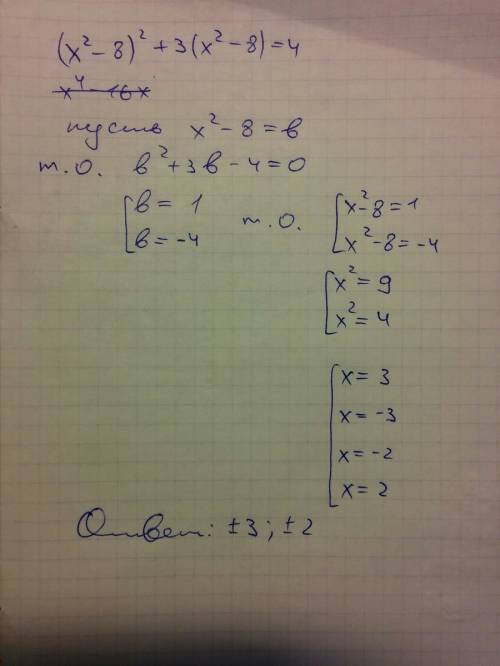 (x² − 8)² + 3(x² − 8) = 4
x⁴ − 16x
пусть x² − 8 = b
т.о. b² + 3b − 4 = 0
[ b = 1
b = −4
т.о. [ x² − 8 = 1
x² − 8 = −4
[ x² = 9
x² = 4
[ x = 3
x = −3
x = −2
x = 2
Ответ: ±3; ±2